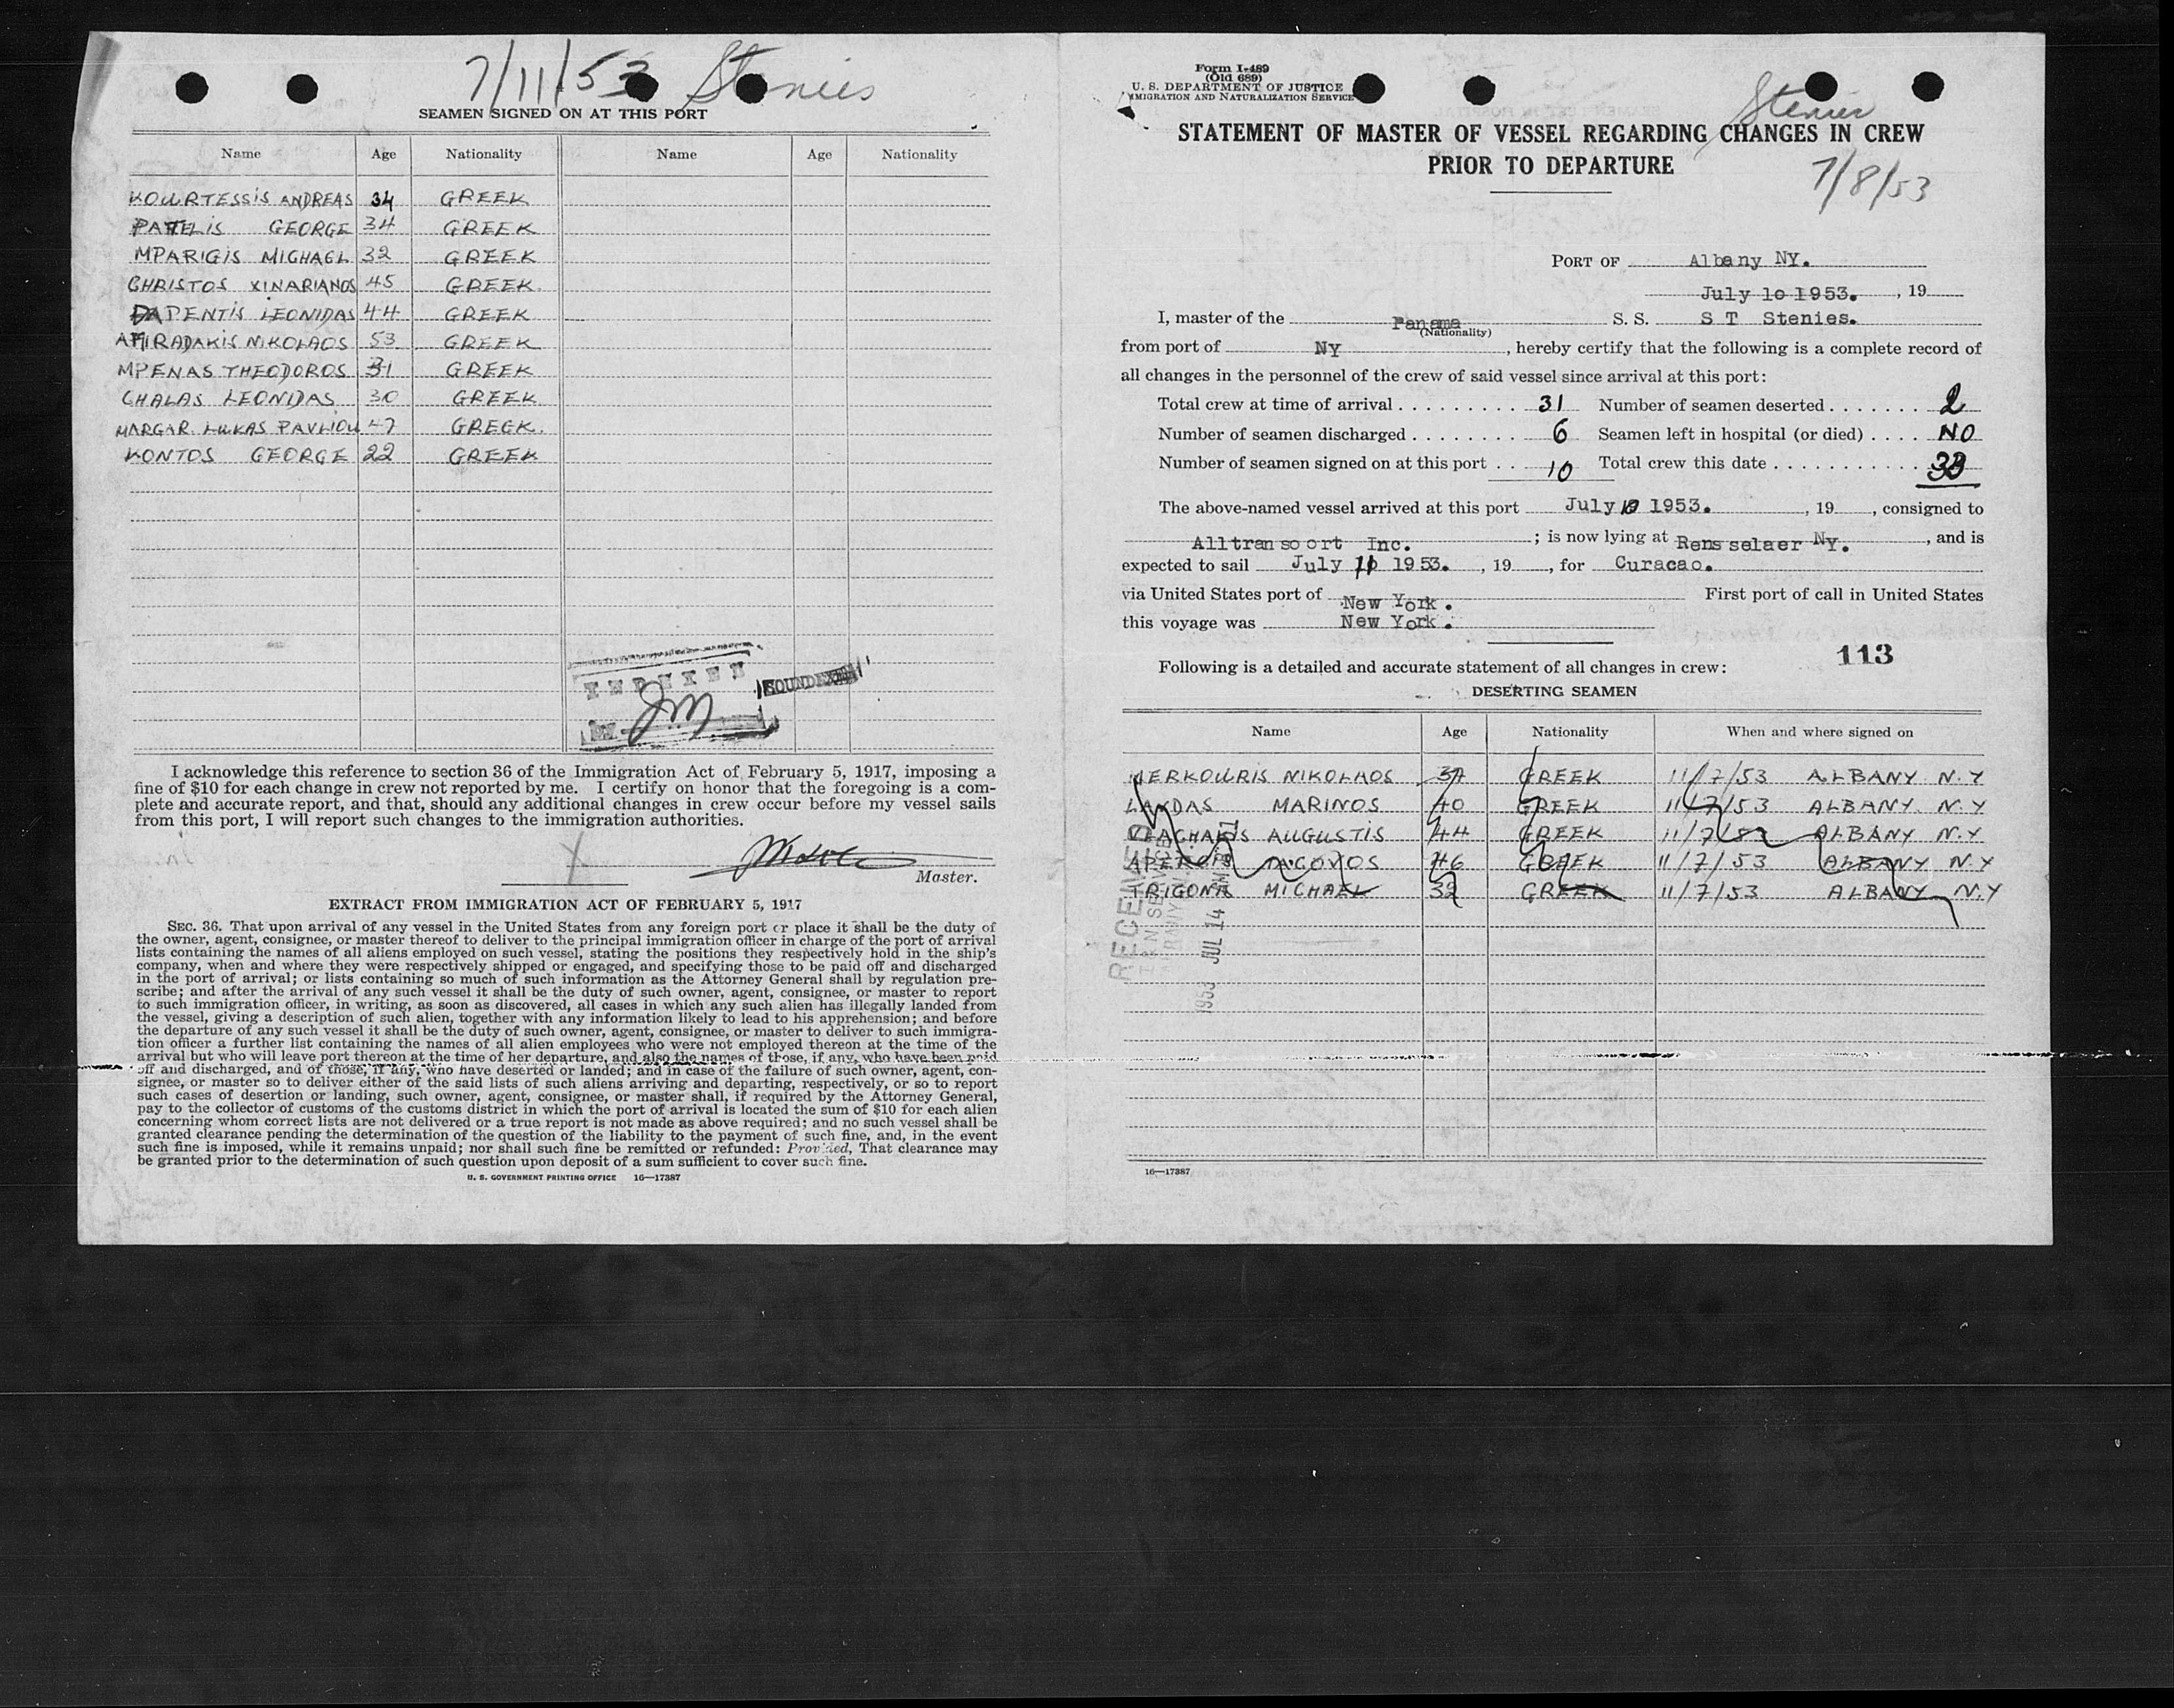 7/11/53 Stenies
SEAMEN SIGNED ON AT THIS PORT
Name Age Nationality Name Age Nationality
KOURTESSIS ANDREAS 34 GREEK
PATELIS GEORGE 34 GREEK
MPARIGIS MICHAEL 32 GREEK
CHRISTOS XINARIANOS 45 GREEK
DAPENTIS LEONIDAS 44 GREEK
NIKOLAOS 53 GREEK
MPENAS THEODOROS 31 GREEK
CHALAS LEONIDAS 30 GREEK
MARGAR. LUKAS PAVLIOU 47 GREEK.
KONTOS GEORGE 22 GREEK
INDEXED
SOUNDEXED
JM
I acknowledge this reference to section 36 of the Immigration Act of February 5, 1917, imposing a
fine of $10 for each change in crew not reported by me. I certify on honor that the foregoing is a com-
plete and accurate report, and that, should any additional changes in crew occur before my vessel sails
from this port, I will report such changes to the immigration authorities.
X
Master.
EXTRACT FROM IMMIGRATION ACT OF FEBRUARY 5, 1917
SEC. 36. That upon arrival of any vessel in the United States from any foreign port or place it shall be the duty of
the owner, agent, consignee, or master thereof to deliver to the principal immigration officer in charge of the port of arrival
lists containing the names of all aliens employed on such vessel, stating the positions they respectively hold in the ship's
company, when and where they were respectively shipped or engaged, and specifying those to be paid off and discharged
in the port of arrival; or lists containing so much of such information as the Attorney General shall by regulation pre-
scribe; and after the arrival of any such vessel it shall be the duty of such owner, agent, consignee, or master to report
to such immigration officer, in writing, as soon as discovered, all cases in which any such alien has illegally landed from
the vessel, giving a description of such alien, together with any information likely to lead to his apprehension; and before
the departure of any such vessel it shall be the duty of such owner, agent, consignee, or master to deliver to such immigra-
tion officer a further list containing the names of all alien employees who were not employed thereon at the time of the
arrival but who will leave port thereon at the time of her departure, and also the names of those, if any, who have been paid
off and discharged, and of those, if any, who have deserted or landed; and in case of the failure of such owner, agent, con-
signee, or master so to deliver either of the said lists of such aliens arriving and departing, respectively, or so to report
such cases of desertion or landing, such owner, agent, consignee, or master shall, if required by the Attorney General,
pay to the collector of customs of the customs district in which the port of arrival is located the sum of $10 for each alien
concerning whom correct lists are not delivered or a true report is not made as above required; and no such vessel shall be
granted clearance pending the determination of the question of the liability to the payment of such fine, and, in the event
such fine is imposed, while it remains unpaid; nor shall such fine be remitted or refunded: Provided, That clearance may
be granted prior to the determination of such question upon deposit of a sum sufficient to cover such fine.
U. S. GOVERNMENT PRINTING OFFICE 16—17387
Form I-489
(Old 689)
U. S. DEPARTMENT OF JUSTICE
IMMIGRATION AND NATURALIZATION SERVICE
Stenies
STATEMENT OF MASTER OF VESSEL REGARDING CHANGES IN CREW
PRIOR TO DEPARTURE
7/8/53
PORT OF Albany NY.
July 10 1953. , 19
I, master of the Panama S. S. S T Stenies.
(Nationality)
from port of Ny , hereby certify that the following is a complete record of
all changes in the personnel of the crew of said vessel since arrival at this port:
Total crew at time of arrival . . . . . . . . . 31 Number of seamen deserted . . . . . . . 2
Number of seamen discharged . . . . . . . . 6 Seamen left in hospital (or died) . . . . NO
Number of seamen signed on at this port . . 10 Total crew this date . . . . . . . . . . . . 33
The above-named vessel arrived at this port July 10 1953. , 19 , consigned to
Alltransoort Inc. ; is now lying at Rensselaer NY. , and is
expected to sail July 11 1953. , 19 , for Curacao.
via United States port of New York. First port of call in United States
this voyage was New York.
113
Following is a detailed and accurate statement of all changes in crew:
DESERTING SEAMEN
Name Age Nationality When and where signed on
MERKOURIS NIKOLAOS 37 GREEK 11/7/53 ALBANY N.Y
LAYDAS MARINOS 40 GREEK 11/7/53 ALBANY. N.Y
VLACHAKIS AUGUSTIS 44 GREEK 11/7/53 ALBANY N.Y
46 GREEK 11/7/53 ALBANY N.Y
TRIGONA MICHAEL 32 GREEK 11/7/53 ALBANY N.Y
RECEIVED
1953 JUL 14
16—17387